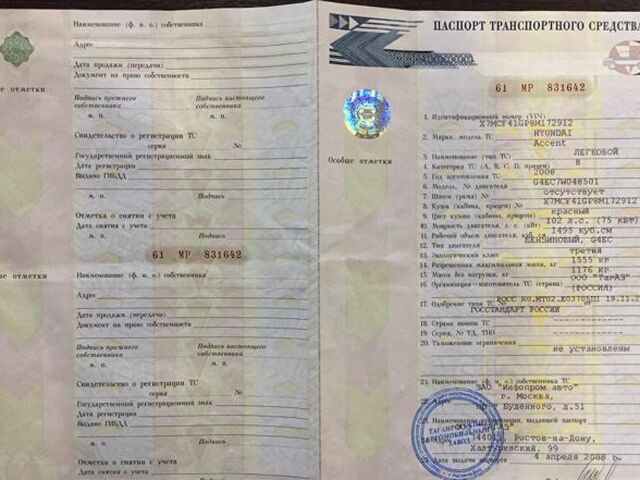 ые отметки
Наименование (ф. и. о.) собственника
Адрес
Дата продажи (передачи)
Документ на право собственности
Подпись прежнего собственника
Подпись настоящего собственника
м. п.
м. п.
Свидетельство о регистрации ТС
серия №
Государственный регистрационный знак
Дата регистрации
Выдано ГИБДД
м. п.
Подпись
Отметка о снятии с учета
Дата снятия с учета
м. п.
Подпись
61 МР 831642
ые отметки
Наименование (ф. и. о.) собственника
Адрес
Дата продажи (передачи)
Документ на право собственности
Подпись прежнего собственника
Подпись настоящего собственника
м. п.
м. п.
Свидетельство о регистрации ТС
серия №
Государственный регистрационный знак
Дата регистрации
Выдано ГИБДД
м. п.
Подпись
Отметка о снятии с учета
Дата снятия с учета
м. п.
Подпись
ПАСПОРТ ТРАНСПОРТНОГО СРЕДСТВА
61 МР 831642
Особые отметки
1. Идентификационный номер (VIN) X7MCF41GP8M172912
2. Марка, модель ТС HYUNDAI Accent
3. Наименование (тип ТС) ЛЕГКОВОЙ
4. Категория ТС (A, B, C, D, прицеп) B
5. Год изготовления ТС 2008
6. Модель, № двигателя G4EC7W048501
7. Шасси (рама) № отсутствует
8. Кузов (кабина, прицеп) № X7MCF41GP8M172912
9. Цвет кузова (кабины, прицепа) красный
10. Мощность двигателя, л. с. (кВт) 102 л.с. (75 кВт)
11. Рабочий объем двигателя, куб. см 1495 куб.см
12. Тип двигателя БЕНЗИНОВЫЙ, G4EC
13. Экологический класс третий
14. Разрешенная максимальная масса, кг 1555 кг
15. Масса без нагрузки, кг 1176 кг
16. Организация-изготовитель ТС (страна) ООО "ТагАЗ" (РОССИЯ)
17. Одобрение типа ТС №
ГОССТАНДАРТ РОССИИ
18. Страна вывоза ТС
19. Серия, № ТД, ТПО
20. Таможенные ограничения не установлены
21. Наименование (ф. и. о.) собственника ТС
ЗАО "Инфопром авто"
22. Адрес г. Москва,
пр-т Буденного, д.51
23. Наименование организации, выдавшей паспорт
ООО "ТагАЗ"
24. Адрес 344011, Ростов-на-Дону,
Халтуринский, 99
25. Дата выдачи паспорта 4 апреля 2008 г.